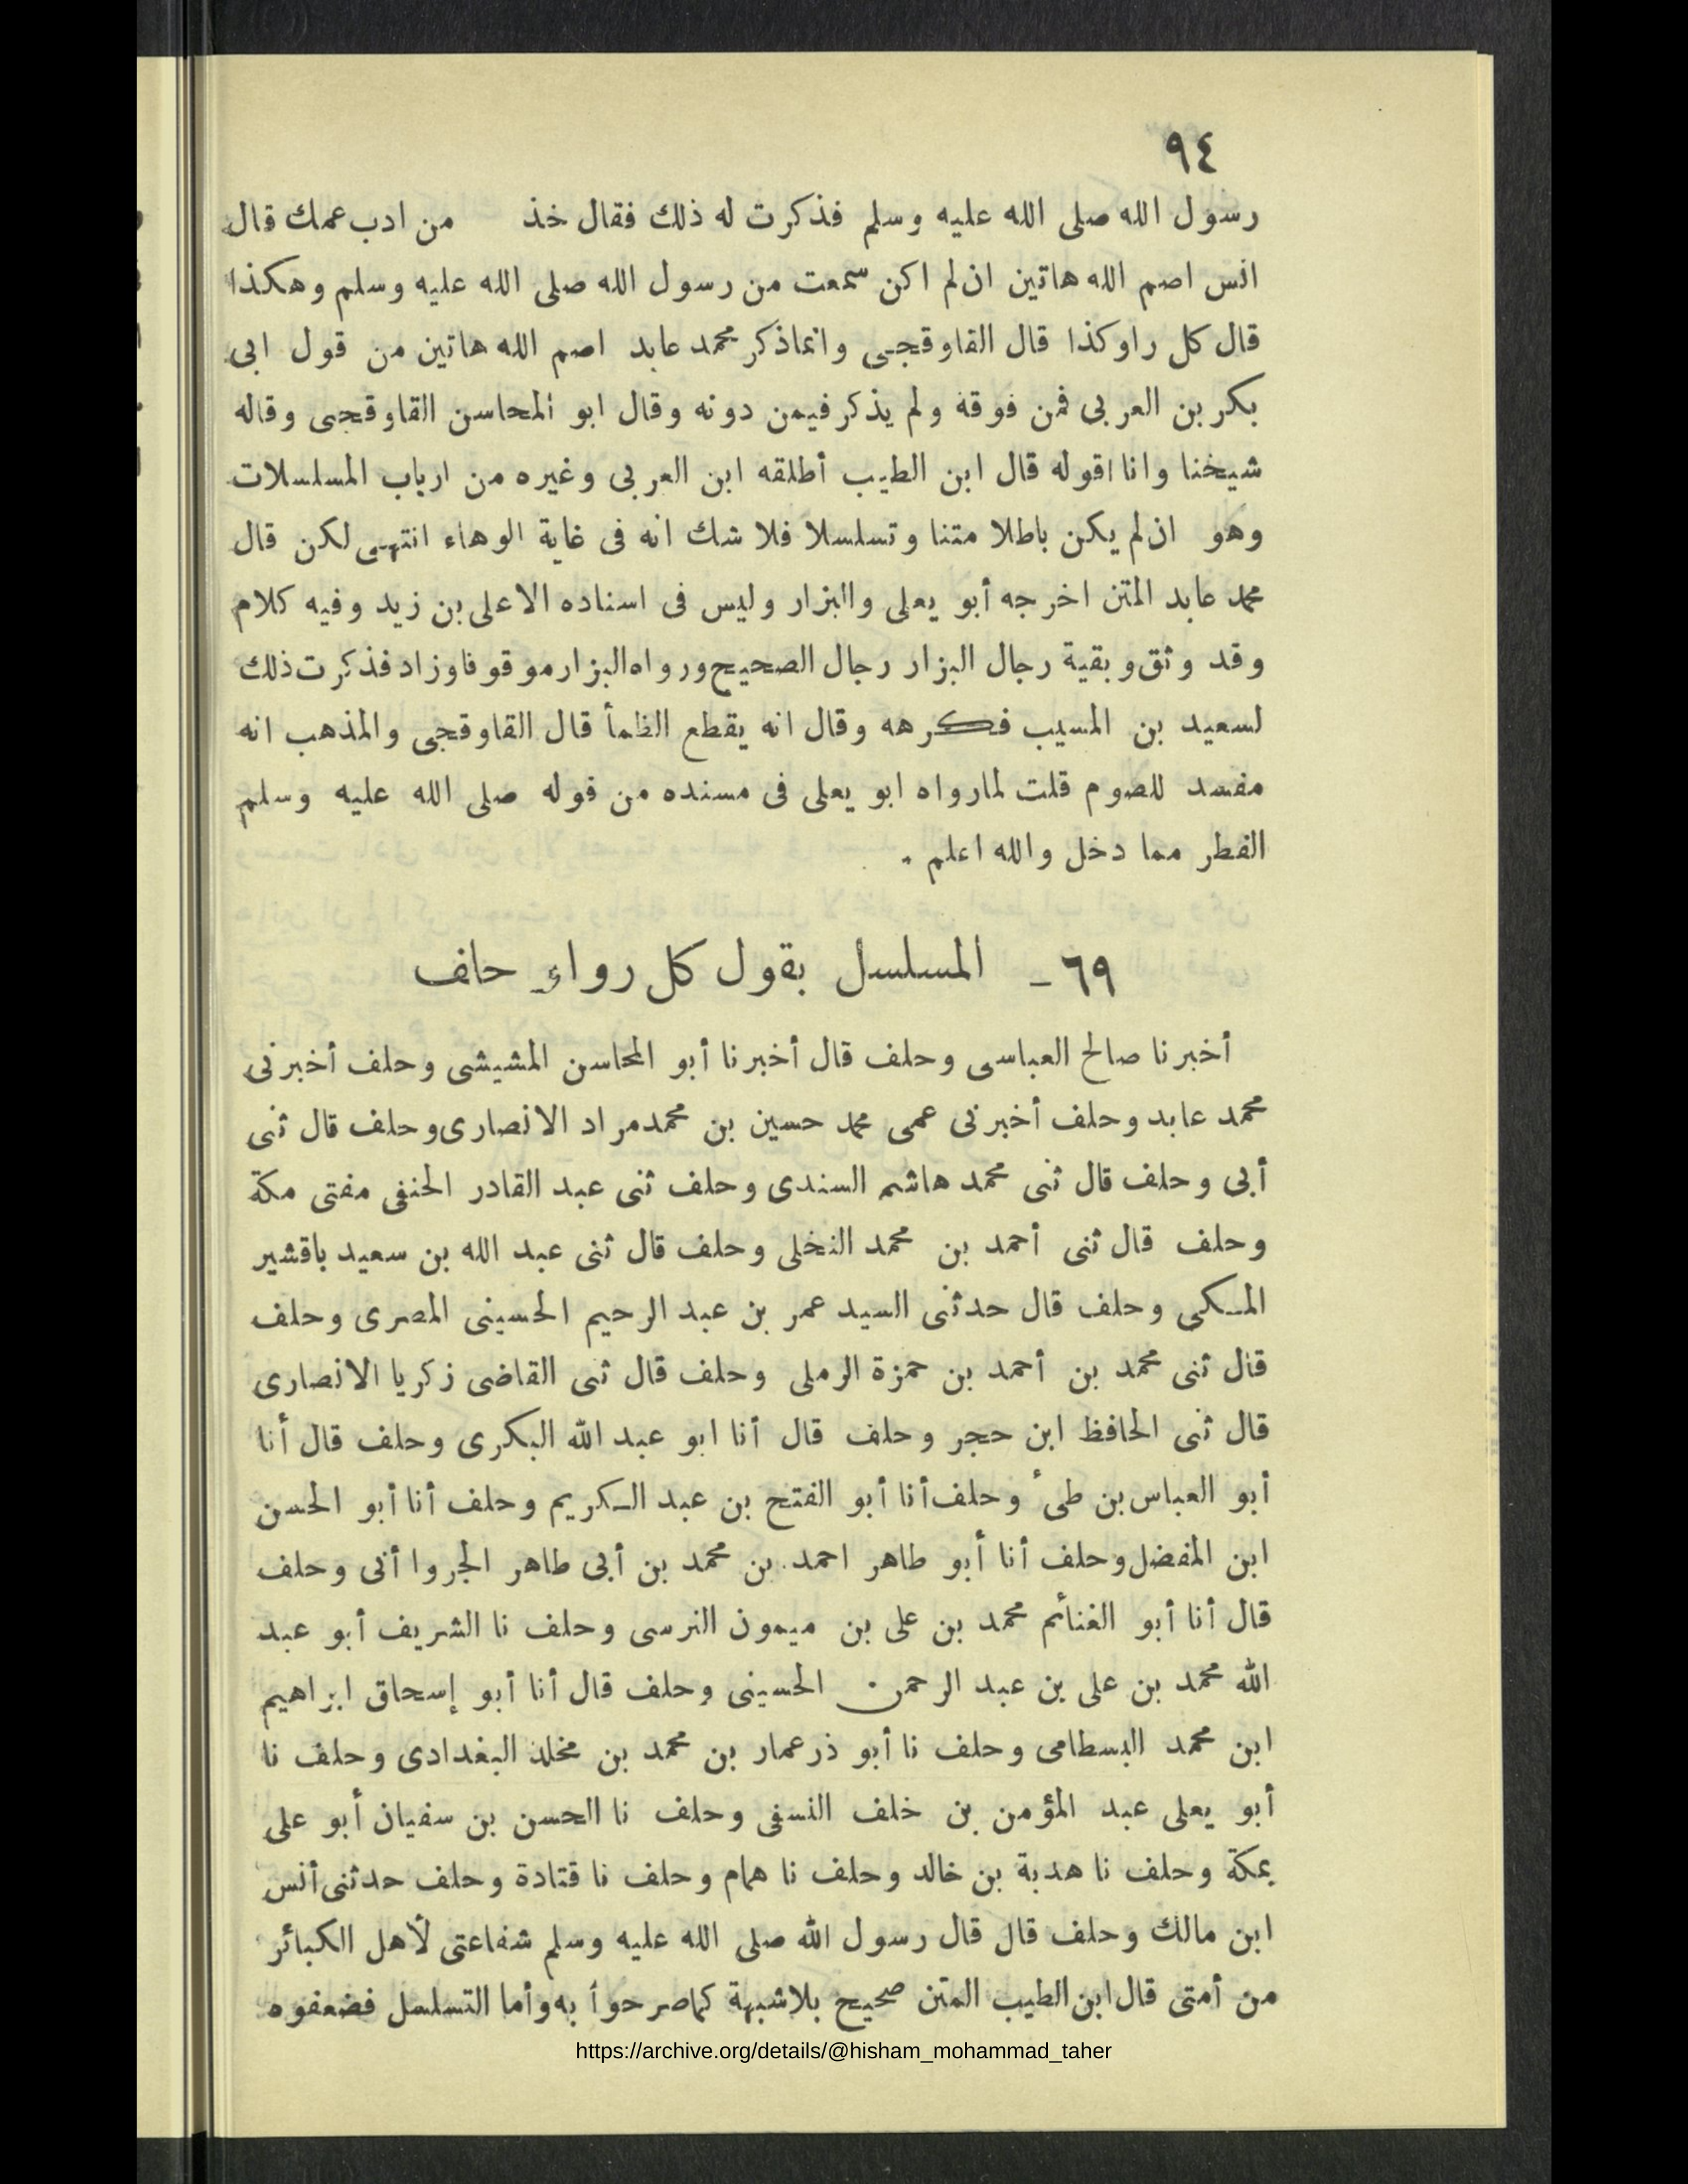 ٩٤
رسول الله صلى الله عليه وسلم فذكرت له ذلك فقال خذ من ادب عمك قال
انس اصم الله هاتين ان لم اكن سمعت من رسول الله صلى الله عليه وسلم وهكذا
قال كل راوكذا قال القاوقجى وانماذكر محمد عابد اصم الله هاتين من قول ابى
بكر بن العربى فمن فوقه ولم يذكر فيمن دونه وقال ابو المحاسن القاوقجى وقاله
شيخنا وانا اقوله قال ابن الطيب أطلقه ابن العربى وغيره من ارباب المسلسلات
وهو ان لم يكن باطلا متنا وتسلسلا فلا شك انه فى غاية الوهاء انتهى لكن قال
محمد عابد المتن اخرجه أبو يعلى والبزار وليس فى اسناده الا على بن زيد وفيه كلام
وقد وثق وبقية رجال البزار رجال الصحيح ورواه البزار موقوفا وزاد فذكرت ذلك
لسعيد بن المسيب فكرهه وقال انه يقطع الظمأ قال القاوقجى والمذهب انه
مفسد للصوم قلت لمارواه ابو يعلى فى مسنده من قوله صلى الله عليه وسلم
الفطر مما دخل والله اعلم .
٦٩ - المسلسل بقول كل رواءٍ حلف
أخبرنا صالح العباسى وحلف قال أخبرنا أبو المحاسن المشيشى وحلف أخبرنى
محمد عابد وحلف أخبرنى عمى محمد حسين بن محمدمراد الانصارى وحلف قال ثنى
أبى وحلف قال ثنى محمد هاشم السندى وحلف ثنى عبد القادر الحنفى مفتى مكة
وحلف قال ثنى أحمد بن محمد النخلى وحلف قال ثنى عبد الله بن سعيد باقشير
المكى وحلف قال حدثنى السيد عمر بن عبد الرحيم الحسينى المصرى وحلف
قال ثنى محمد بن أحمد بن حمزة الرملى وحلف قال ثنى القاضى زكريا الانصارى
قال ثنى الحافظ ابن حجر وحلف قال أنا ابو عبد الله البكرى وحلف قال أنا
أبو العباس بن طىء وحلف أنا أبو الفتح بن عبد الكريم وحلف أنا أبو الحسن
ابن المفضل وحلف أنا أبو طاهر احمد بن محمد بن أبى طاهر الجروا أنى وحلف
قال أنا أبو الغنائم محمد بن على بن ميمون النرسى وحلف نا الشريف أبو عبد
الله محمد بن على بن عبد الرحمن الحسينى وحلف قال أنا أبو إسحاق ابراهيم
ابن محمد البسطامى وحلف نا أبو ذر عمار بن محمد بن مخلد البغدادى وحلف نا
أبو يعلى عبد المؤمن بن خلف النسفى وحلف نا الحسن بن سفيان أبو على
بمكة وحلف نا هدبة بن خالد وحلف نا همام وحلف نا قتادة وحلف حدثنى أنس
ابن مالك وحلف قال قال رسول الله صلى الله عليه وسلم شفاعتى لأهل الكبائر
من أمتى قال ابن الطيب المتن صحيح بلاشبهة كماصرحوا به وأما التسلسل فضعفوه
https://archive.org/details/@hisham_mohammad_taher